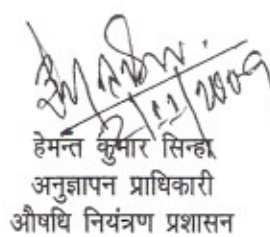 हेमन्त कुमार सिन्हा
अनुज्ञापन प्राधिकारी
औषधि नियंत्रण प्रशासन